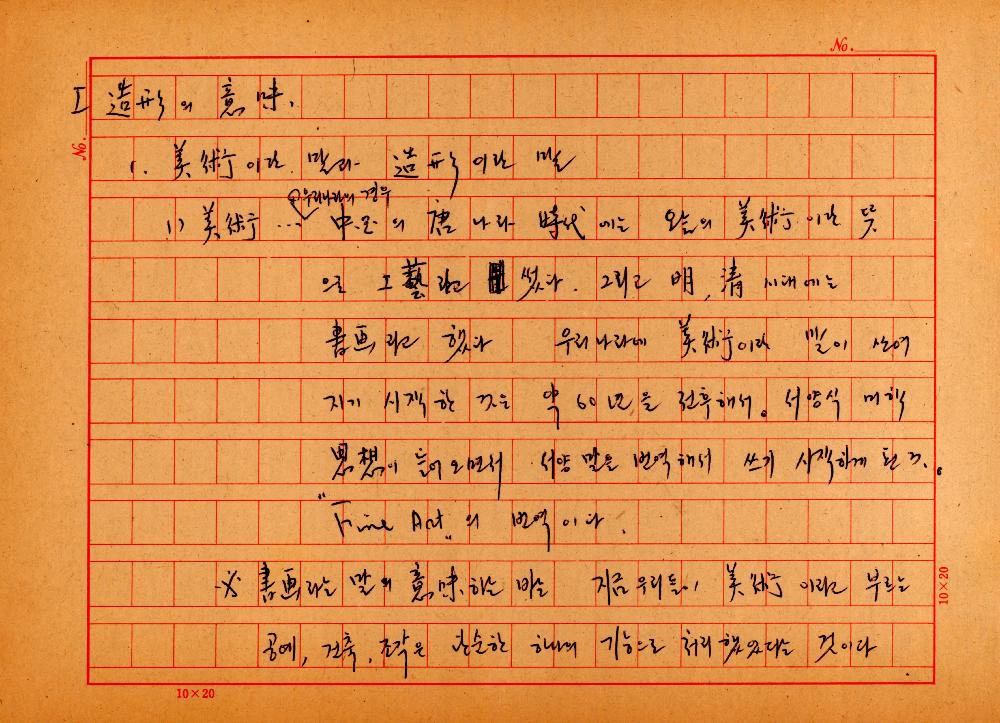 No.
I 造形의 意味.
No.
1. 美術이란 말과 造形이란 말
① 우리나라의 경우
1) 美術 … 中國의 唐나라 時代에는 오늘의 美術이란 뜻
으로 工藝라고 썼다. 그리고 明, 淸 시대에는
書画라고 했다 우리나라에 美術이란 말이 쓰여
지기 시작한 것은 약 60년을 전후해서. 서양식 미학
思想이 들어오면서 서양 말을 번역해서 쓰기 시작하게 된 것.
"Fine Art"의 번역이다.
※ 書画라는 말의 意味하는 바는 지금 우리들이 美術이라고 부르는
공예, 건축, 조각은 단순한 하나의 기능으로 처리했었다는 것이다
10×20
10×20